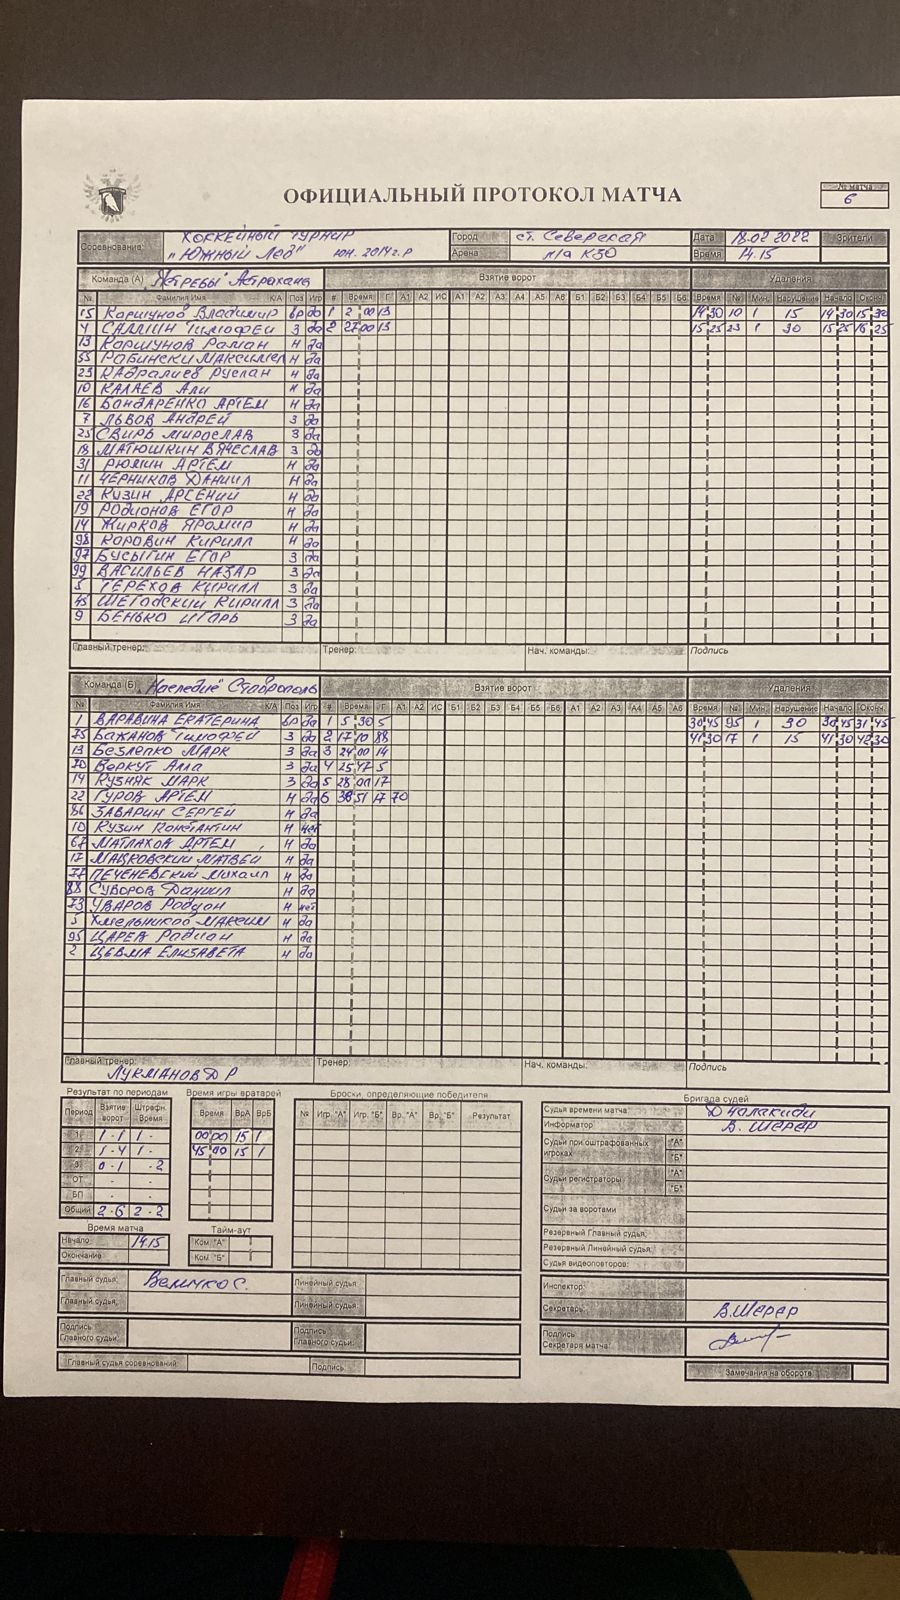 ОФИЦИАЛЬНЫЙ ПРОТОКОЛ МАТЧА
№ матча
6
Соревнование: Хоккейный турнир "Южный Лёд" юн. 2014 г.р
Город ст. Северская
Арена л/а КЗО
Дата 18.02 2022 Зрители
Время 14.15
Команда (А) "Ястребы" Астрахань Взятие ворот Удаления
№ Фамилия Имя К/А Поз Игр # Время Г А1 А2 ИС А1 А2 А3 А4 А5 А6 Б1 Б2 Б3 Б4 Б5 Б6 Время № Мин. Нарушение Начало Оконч.
15 Коршунов Владимир вр да 1 2 00 13 14 30 10 1 15 14 30 15 30
4 САЛЛИН Тимофей З да 2 27 00 13 15 25 23 1 30 15 25 16 25
13 Коршунов Роман Н да
55 Рабински Максимел Н да
23 Кадралиев Руслан Н да
10 КАЛАЕВ Али Н да
16 БОНДАРЕНКО АРТЕМ Н да
7 ЛЬВОВ АНДРЕЙ З да
25 СВИРЬ МИРОСЛАВ З да
18 МАТЮШКИН ВЯЧЕСЛАВ З да
31 РЮМИН АРТЕМ Н да
11 ЧЕРНИКОВ ДАНИИЛ Н да
22 КУЗИН АРСЕНИЙ Н да
19 РОДИОНОВ ЕГОР Н да
14 ЖИРКОВ ЯРОМИР Н да
98 КОРОВИН КИРИЛЛ Н да
97 БУСЫГИН ЕГОР З да
99 ВАСИЛЬЕВ НАЗАР З да
5 ТЕРЕХОВ КИРИЛЛ З да
45 Шегодский Кирилл З да
9 БЕНЬКО ИГОРЬ З да
Главный тренер: Тренер: Нач. команды: Подпись
Команда (Б) "Наследие" Ставрополь Взятие ворот Удаления
№ Фамилия Имя К/А Поз Игр # Время Г А1 А2 ИС Б1 Б2 Б3 Б4 Б5 Б6 А1 А2 А3 А4 А5 А6 Время № Мин. Нарушение Начало Оконч.
1 ВАРАВИНА ЕКАТЕРИНА вр да 1 5 30 5 30 45 95 1 30 30 45 31 45
75 Бажанов Тимофей З да 2 17 10 88 41 30 17 1 15 41 30 42 30
13 Безлепко МАРК З да 3 24 00 14
70 Воркут Алла З да 4 25 47 5
14 КУЗНЯК МАРК З да 5 28 00 17
22 ГУРОВ АРТЕМ Н да 6 38 51 17 70
86 ЗАВАРИН СЕРГЕЙ Н да
10 Кузин Константин Н нет
67 МАТЛАХОВ АРТЕМ Н да
17 МАЦКОВСКИЙ МАТВЕЙ Н да
77 ПЕЧЕНЕВСКИЙ Михаил Н да
88 СУВОРОВ Даниил Н да
73 УВАРОВ Родион Н нет
5 Хмельников МАКСИМ Н да
95 ЦАРЕВ Радион Н да
2 ЦЕВМА ЕЛИЗАВЕТА Н да
Главный тренер: ЛУКМАНОВ Д Р Тренер: Нач. команды: Подпись
Результат по периодам
Период Взятие ворот Штрафн. Время
1 1 - 1 1 -
2 1 - 4 1 -
3 0 - 1 - 2
ОТ - -
БП - -
Общий 2 - 6 2 - 2
Время игры вратарей
Время ВрА ВрБ
00 00 15 1
45 00 15 1
Броски, определяющие победителя
№ Игр. "А" Игр. "Б" Вр. "А" Вр. "Б" Результат
Бригада судей
Судья времени матча
Информатор В. ШЕРЕР
Судьи при оштрафованных игроках "А" "Б"
Судьи регистраторы "А" "Б"
Судьи за воротами
Резервный Главный судья:
Резервный Линейный судья:
Судья видеоповторов:
Время матча
Начало: 14.15
Окончание
Тайм-аут
Ком. "А"
Ком. "Б"
Главный судья: Величко С. Линейный судья:
Главный судья: Линейный судья:
Подпись Главного судьи: Подпись Главного судьи:
Главный судья соревнований: Подпись:
Инспектор:
Секретарь: В.Шерер
Подпись Секретаря матча:
Замечания на обороте